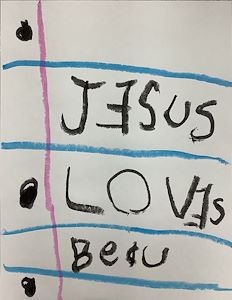 JESUS
LOVEs
Beau